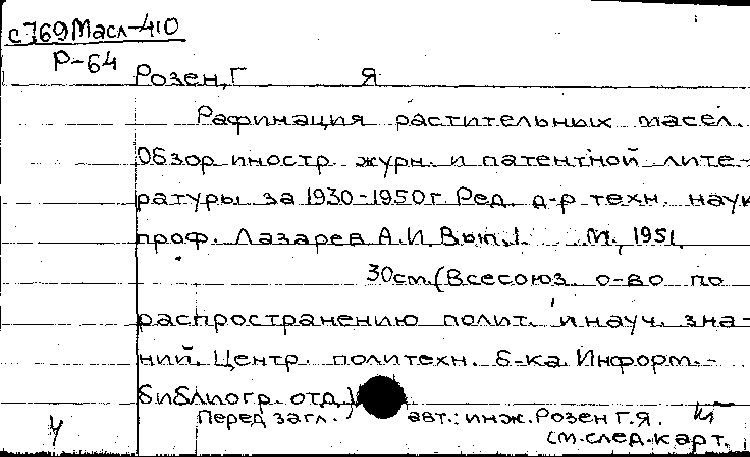 с769Масл-410
Р-64
Розен, Г Я
Рафинация растительных масел.
Обзор иностр. журн. и патентной лите-
ратуры за 1930-1950г. Ред. д-р техн. наук
проф. Лазарев А.И. Вып. 1. М., 1951.
30см. (Всесоюз. о-во по
распространению полит. и науч. зна-
ний. Центр. политехн. б-ка. Информ.-
библиогр. отд.)
Перед загл. авт.: инж. Розен Г.Я.
см. след. карт.